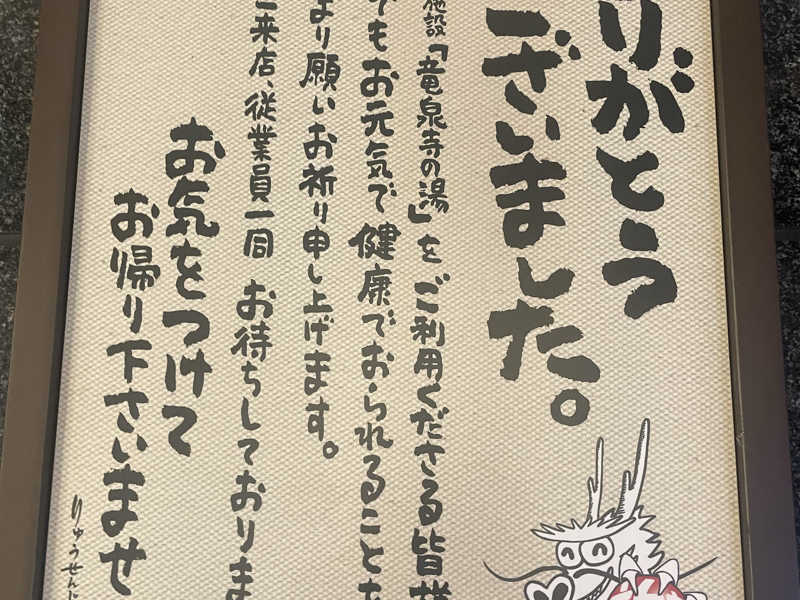 りがとう
ございました。
施設「竜泉寺の湯」をご利用くださる皆様
でもお元気で健康でおられることを
より願いお祈り申し上げます。
ご来店、従業員一同 お待ちしておりま
お気をつけて
お帰り下さいませ
りゅうせんじ